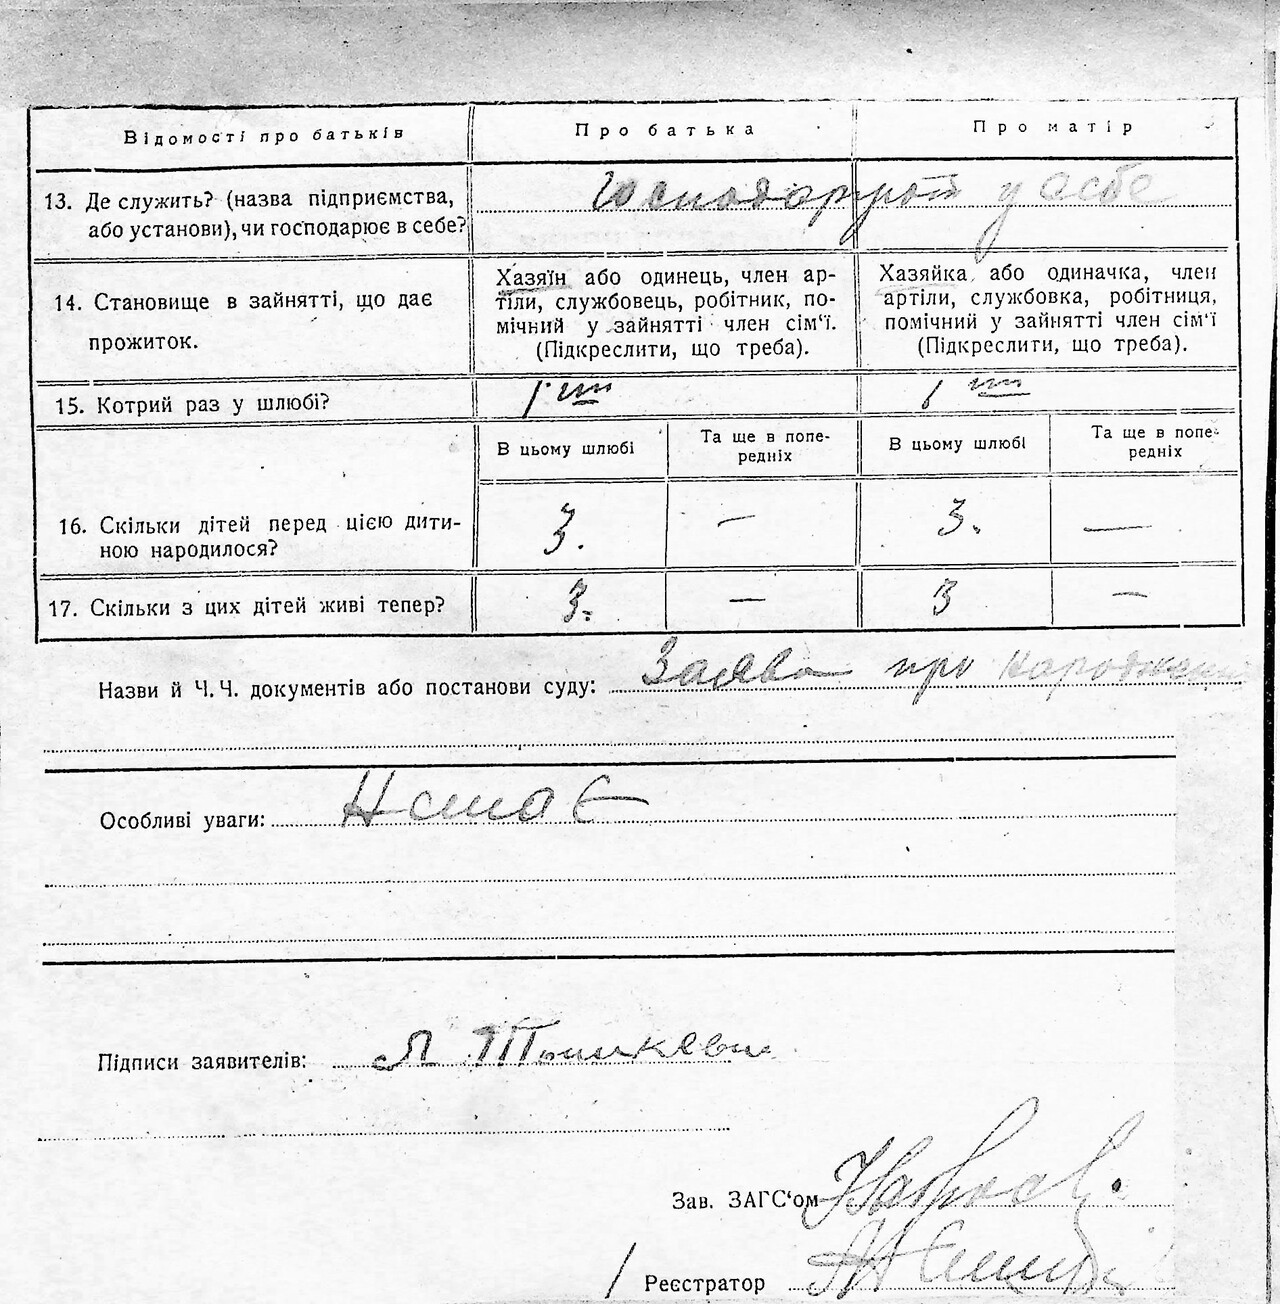 Відомості про батьків
Про батька
Про матір
13. Де служить? (назва підприємства,
або установи), чи господарює в себе?
Господарюют у себе
14. Становище в зайнятті, що дає
прожиток.
Хазяїн або одинець, член ар-
тіли, службовець, робітник, по-
мічний у зайнятті член сім'ї.
(Підкреслити, що треба).
Хазяйка або одиначка, член
артіли, службовка, робітниця,
помічний у зайнятті член сім'ї
(Підкреслити, що треба).
15. Котрий раз у шлюбі?
1
1
В цьому шлюбі
Та ще в попе-
редніх
В цьому шлюбі
Та ще в попе-
редніх
16. Скільки дітей перед цією дити-
ною народилося?
3.
—
3.
—
17. Скільки з цих дітей живі тепер?
3.
—
3
—
Назви й Ч. Ч. документів або постанови суду: Заява про народжен
Особливі уваги: Немає
Підписи заявителів:
Зав. ЗАГС'ом
Реєстратор